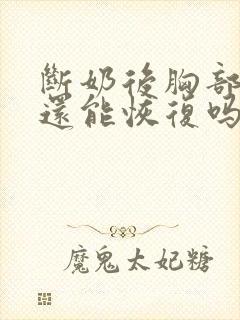 斷奶後胸部
還能恢復嗎
魔鬼太妃糖